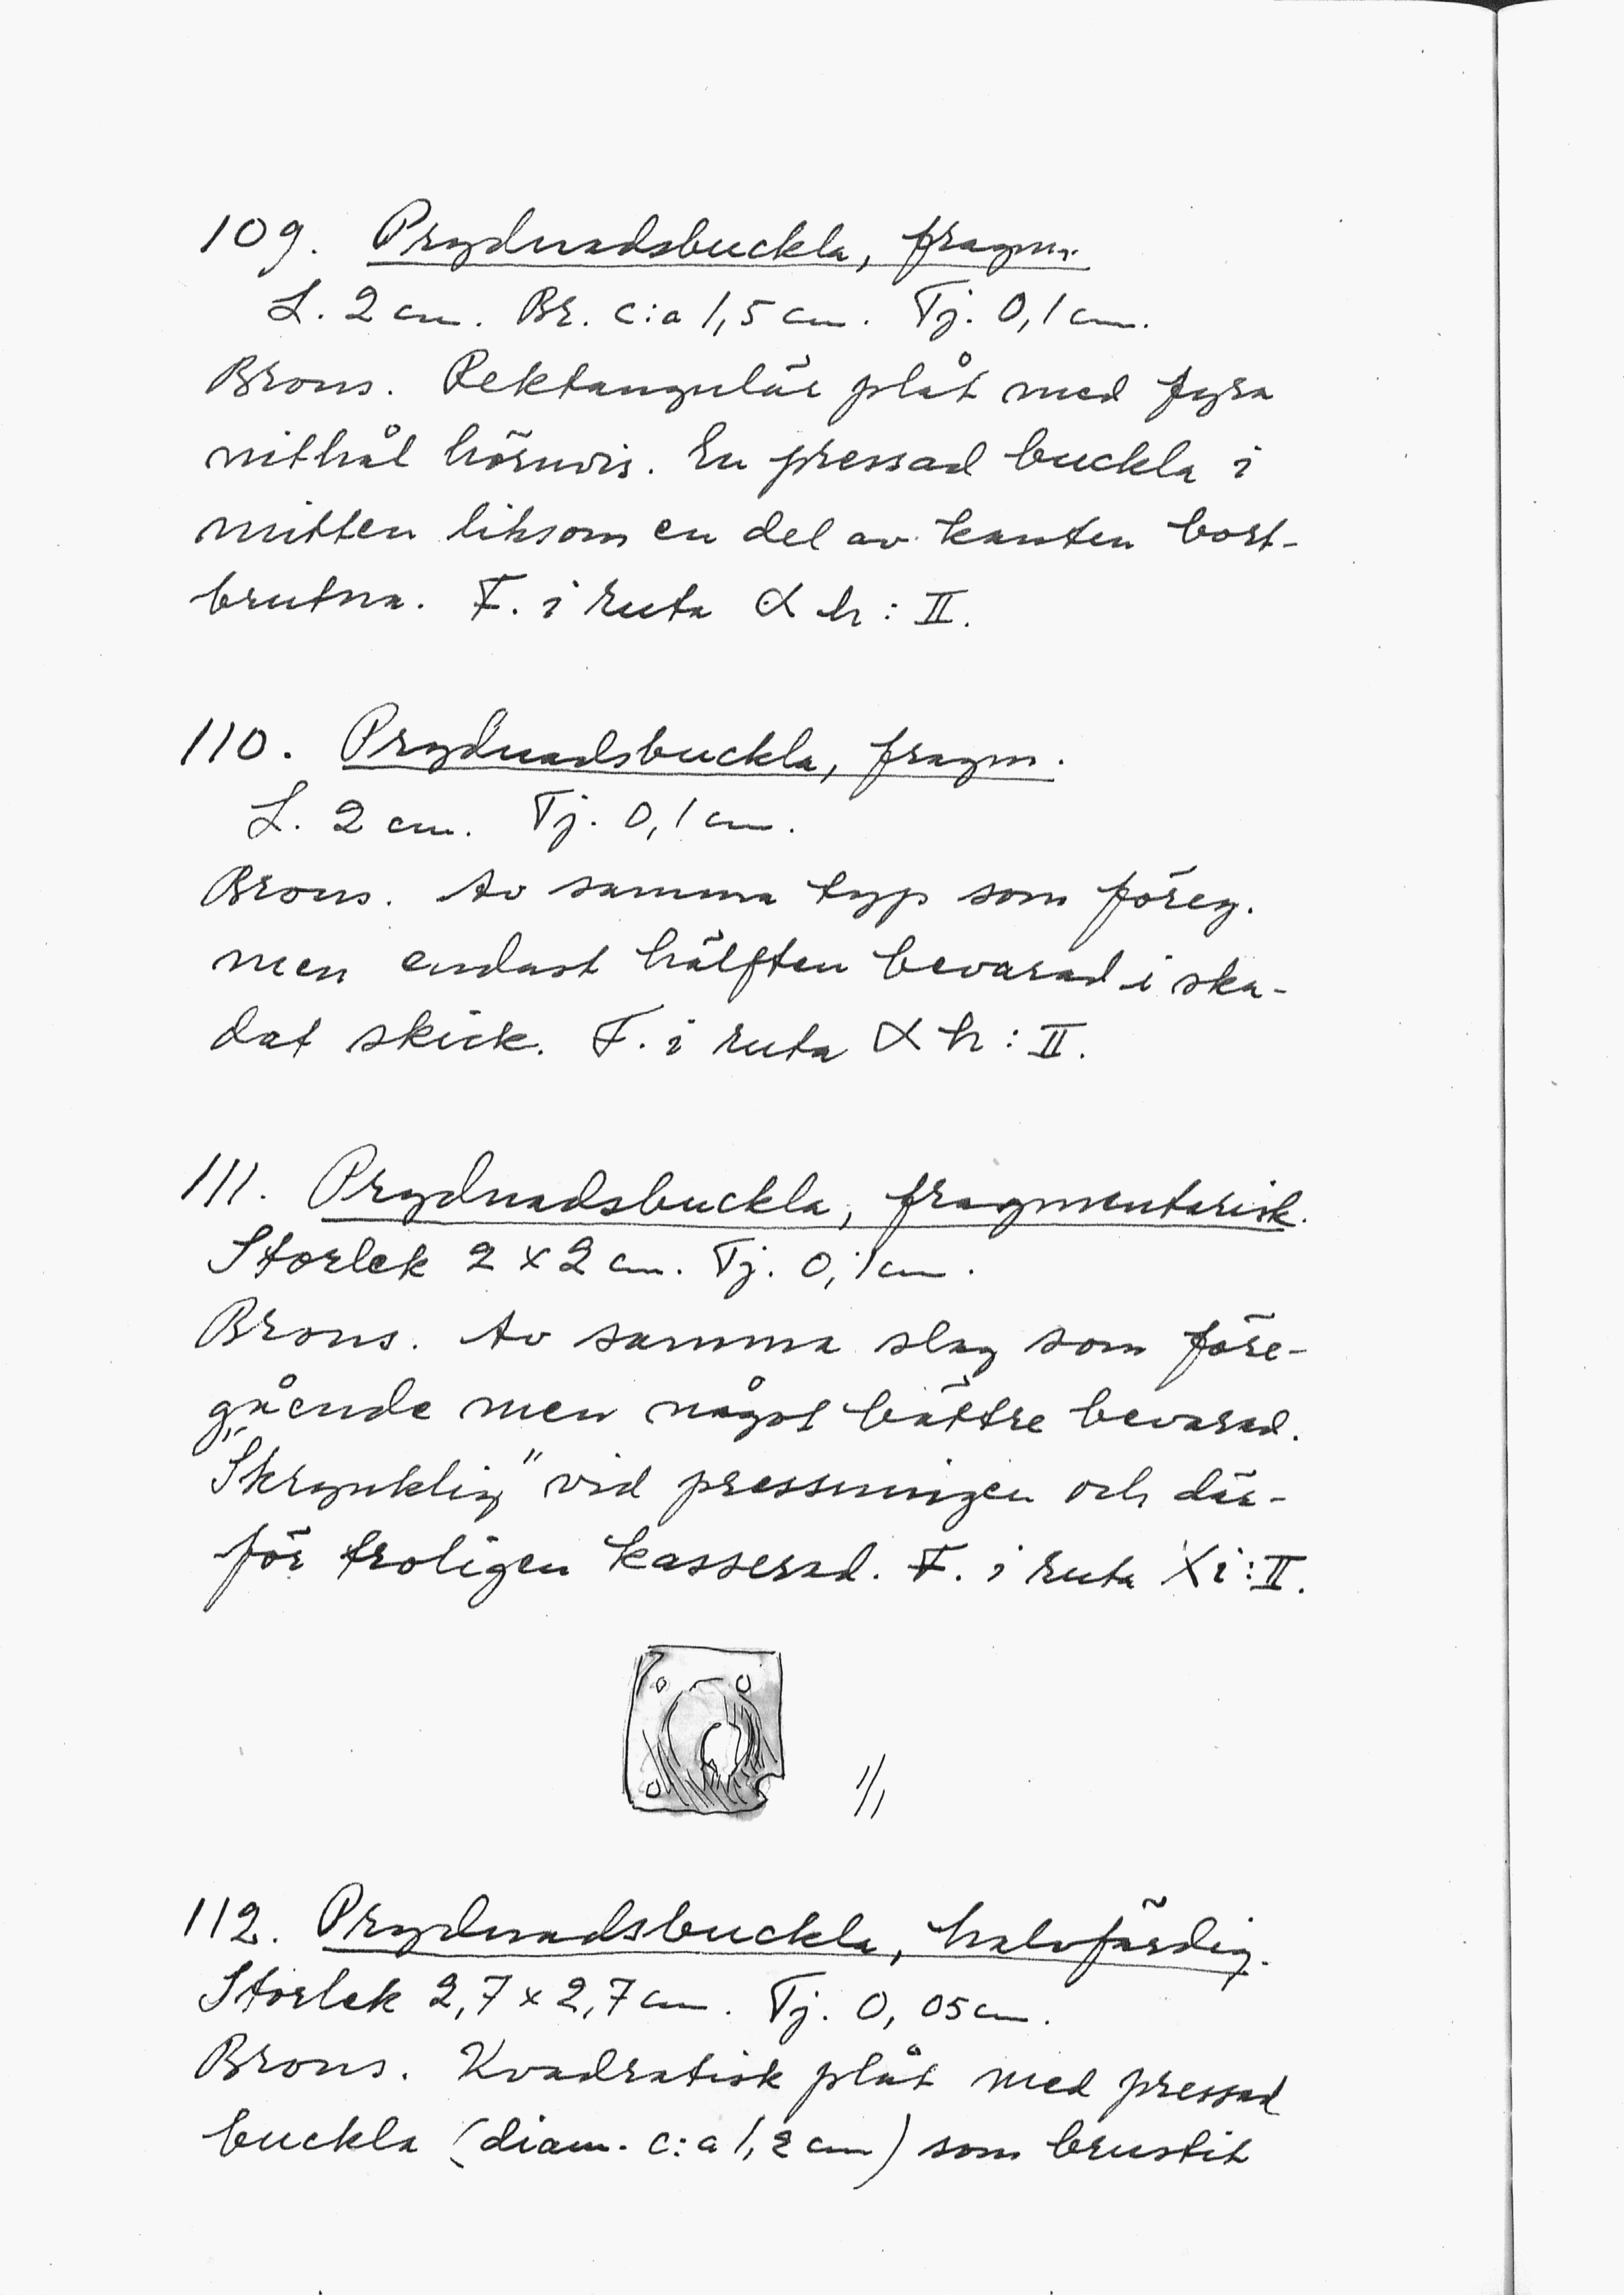 109. Prydnadsbuckla, fragm.
L. 2 cm. Br. c:a 1,5 cm. Tj. 0,1 cm.
Brons. Rektangulär plåt med fyra
nithål hörnvis. En pressad buckla i
mitten liksom en del av kanten bort-
brutna. F. i ruta α h : II.
110. Prydnadsbuckla, fragm.
L. 2 cm. Tj. 0,1 cm.
Brons. Av samma typ som föreg.
men endast hälften bevarad i ska-
dat skick. F. i ruta α h : II.
111. Prydnadsbuckla, fragmentarisk.
Storlek 2 x 2 cm. Tj. 0,1 cm.
Brons. Av samma slag som före-
gående men något bättre bevarad.
"Skrynklig" vid pressningen och där-
för troligen kasserad. F. i ruta X i : II.
1/1
112. Prydnadsbuckla, halvfärdig.
Storlek 2,7 x 2,7 cm. Tj. 0,05 cm.
Brons. Kvadratisk plåt med pressad
buckla (diam. c:a 1,2 cm) som brustit